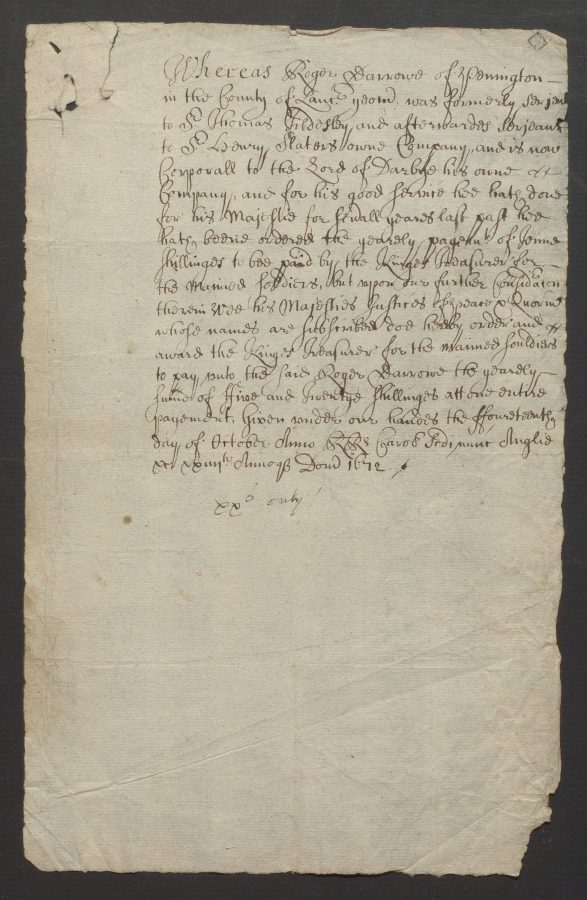 Whereas Roger Darrowe of Pennington
in the County of Lancr yeom was formerly Serjeant
to Sr Thomas Tildesley and afterwardes Serjeant
to Sr Henery Slaters owne Company, and is now
Corporall to the Lord of Darbye his owne
Company, and for his good service hee hath done
for his Majestie for sevrall yeares last past hee
hath beene ordered the yearely payemt of Tenne
shillinges to bee paid by the Kinges Treasurer for
the Maimed Soldiers, but upon our further Considracon
therein Wee his Majesties Justices of peace & Quorum
whose names are subscribed doe hereby order and
award the Kinges Treasurer for the maimed souldiers
to pay unto the said Roger Darrowe the yearely
sume of ffive and twentye shillinges att one entire
payement, Given under our handes the ffourteenth
day of October Anno RRs Caroli Scdi nunc Anglie
&c xxiiiito Annoq Domi 1672
xxs only